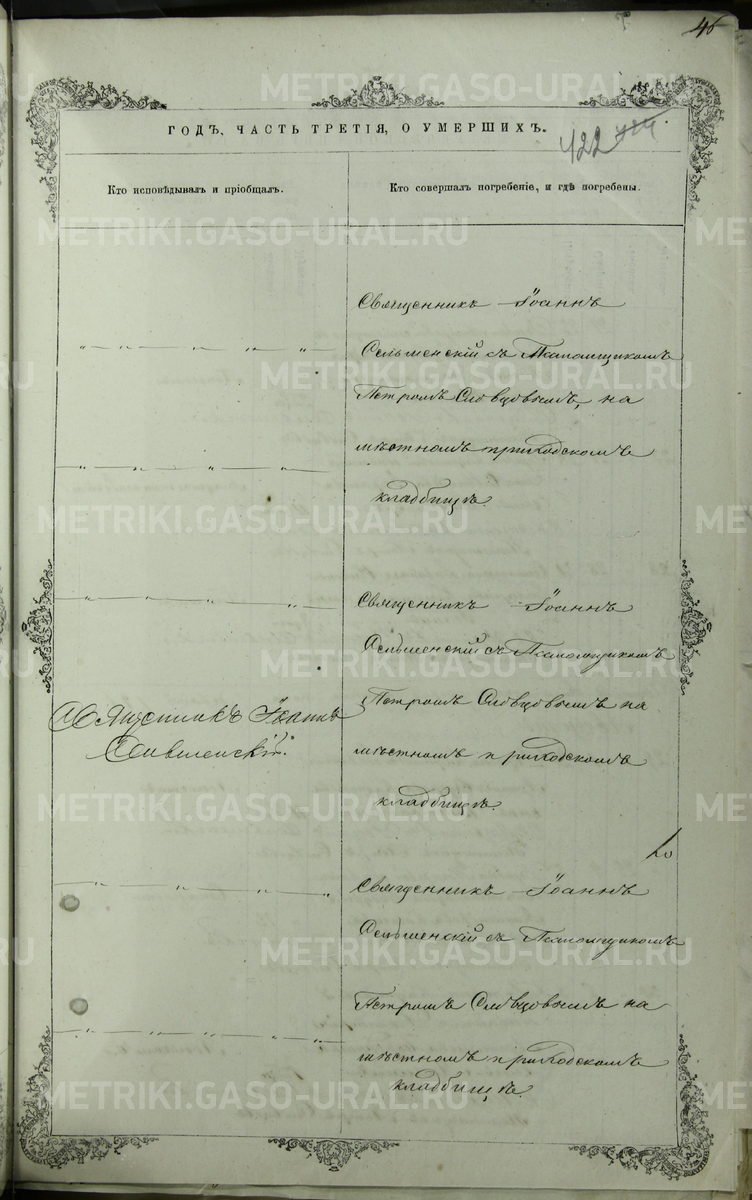 46
ГОДЪ, ЧАСТЬ ТРЕТІЯ, О УМЕРШИХЪ.
422
Кто исповѣдывалъ и пріобщалъ.
Кто совершалъ погребеніе, и гдѣ погребены.
Священникъ Іоаннъ
съ Псаломщикомъ
Петромъ Словцовымъ, на
мѣстномъ приходскомъ
кладбищѣ.
Священникъ Іоаннъ
съ Псаломщикомъ
Петромъ Словцовымъ на
мѣстномъ приходскомъ
кладбищѣ.
Священникъ Іоаннъ
Священникъ Іоаннъ
съ Псаломщикомъ
Петромъ Словцовымъ на
мѣстномъ приходскомъ
кладбищѣ.
METRIKI.GASO-URAL.RU